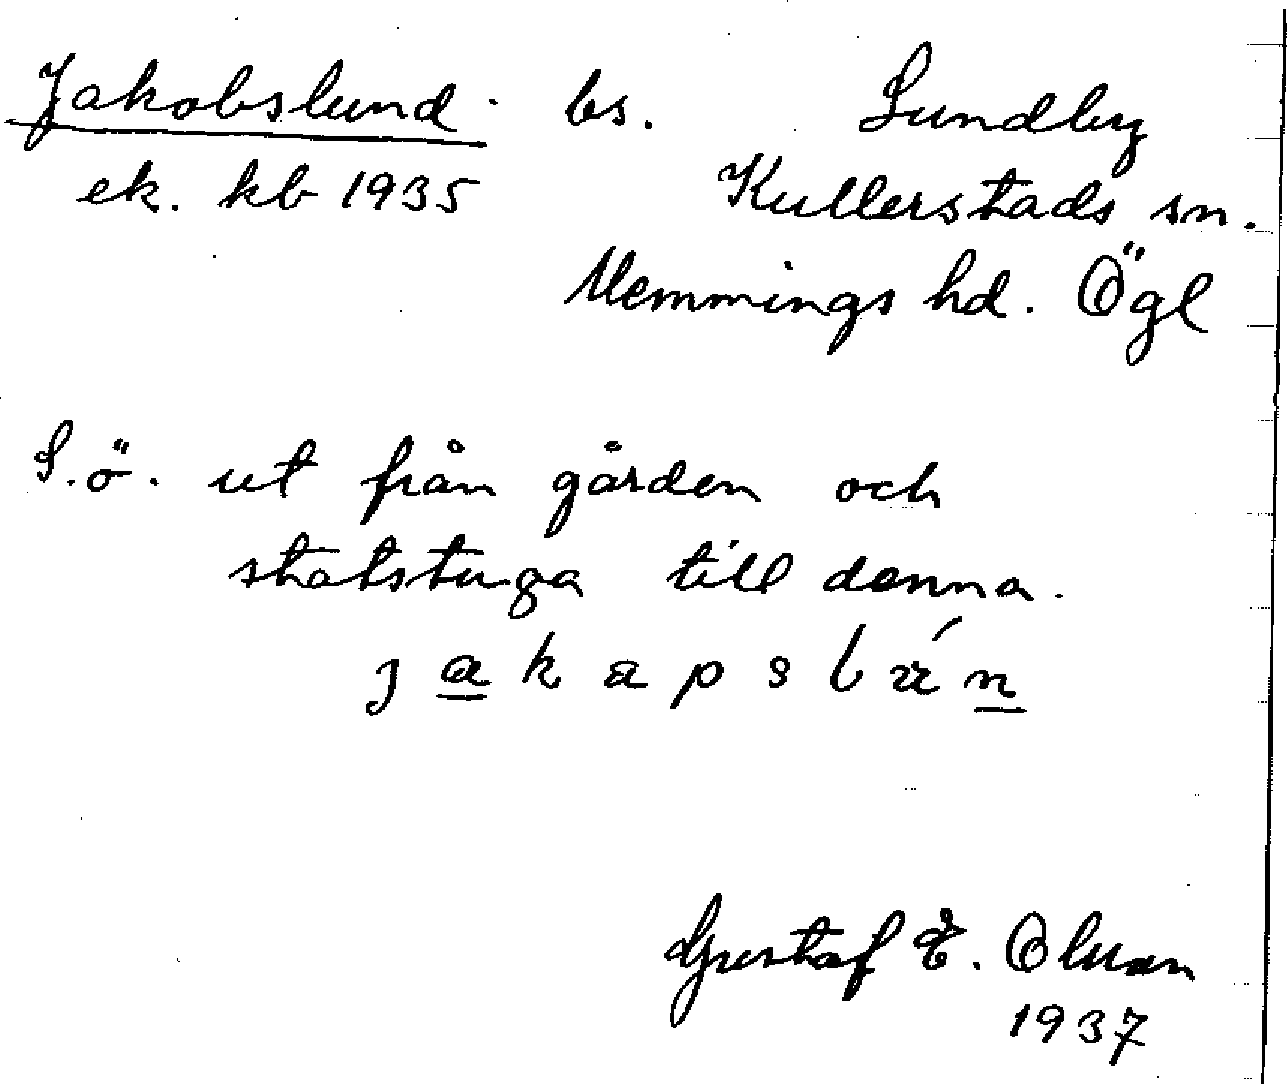 Jakobslund bs. Lundby
ek. kb 1935 Kullerstads sn.
Memmings hd. Ögl
S.ö. ut från gården och
statstuga till denna.
j a k a p s l n
Gustaf E. Olsson
1937